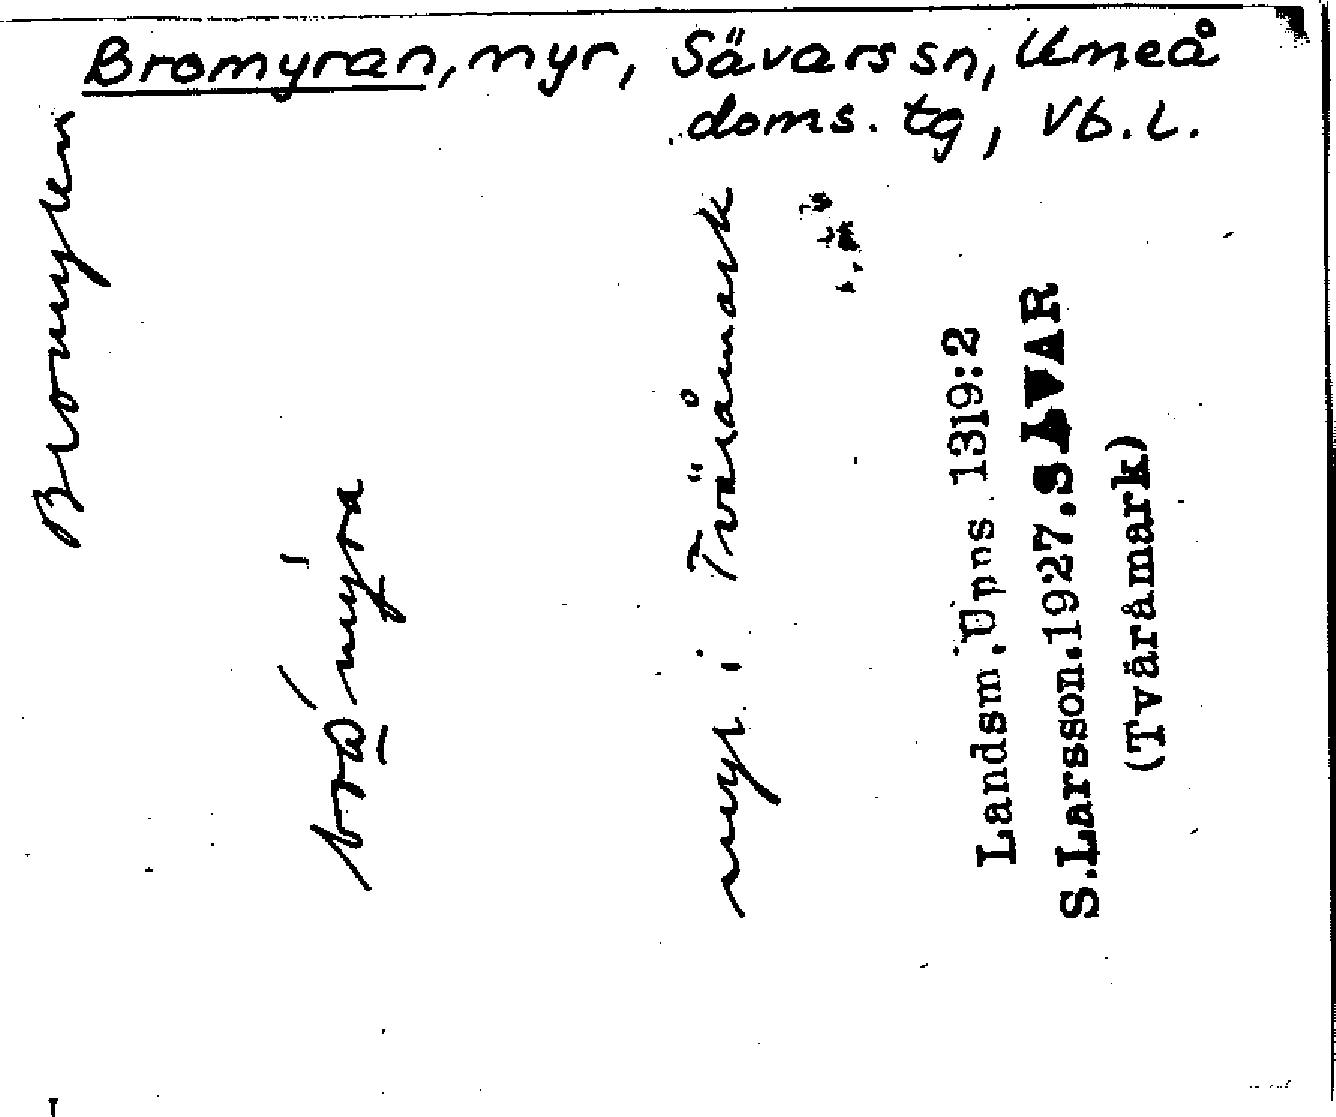 Bromyran, myr, Sävars sn, Umeå
doms. tg, Vb. l.
Bromyren
myr i Tväråmark
Landsm. Upps 1319:2
S.Larsson.1927.SÄVAR
(Tväråmark)